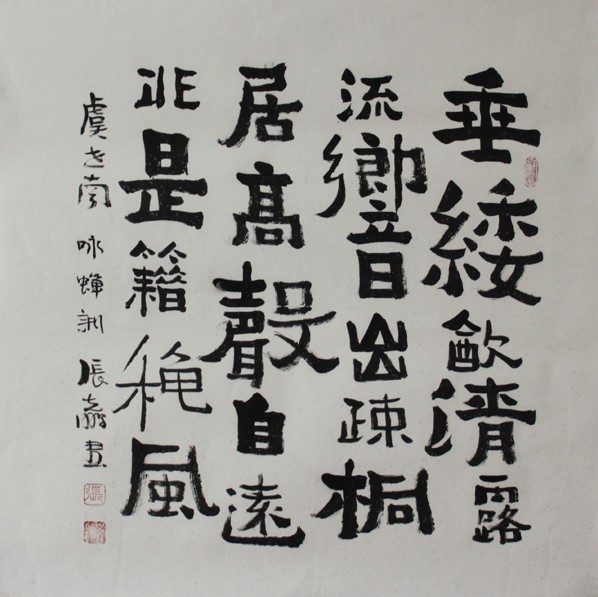 垂緌飲清露
流響出疎桐
居高聲自遠
非是籍穐風
虞世南 咏蟬詩 張 書